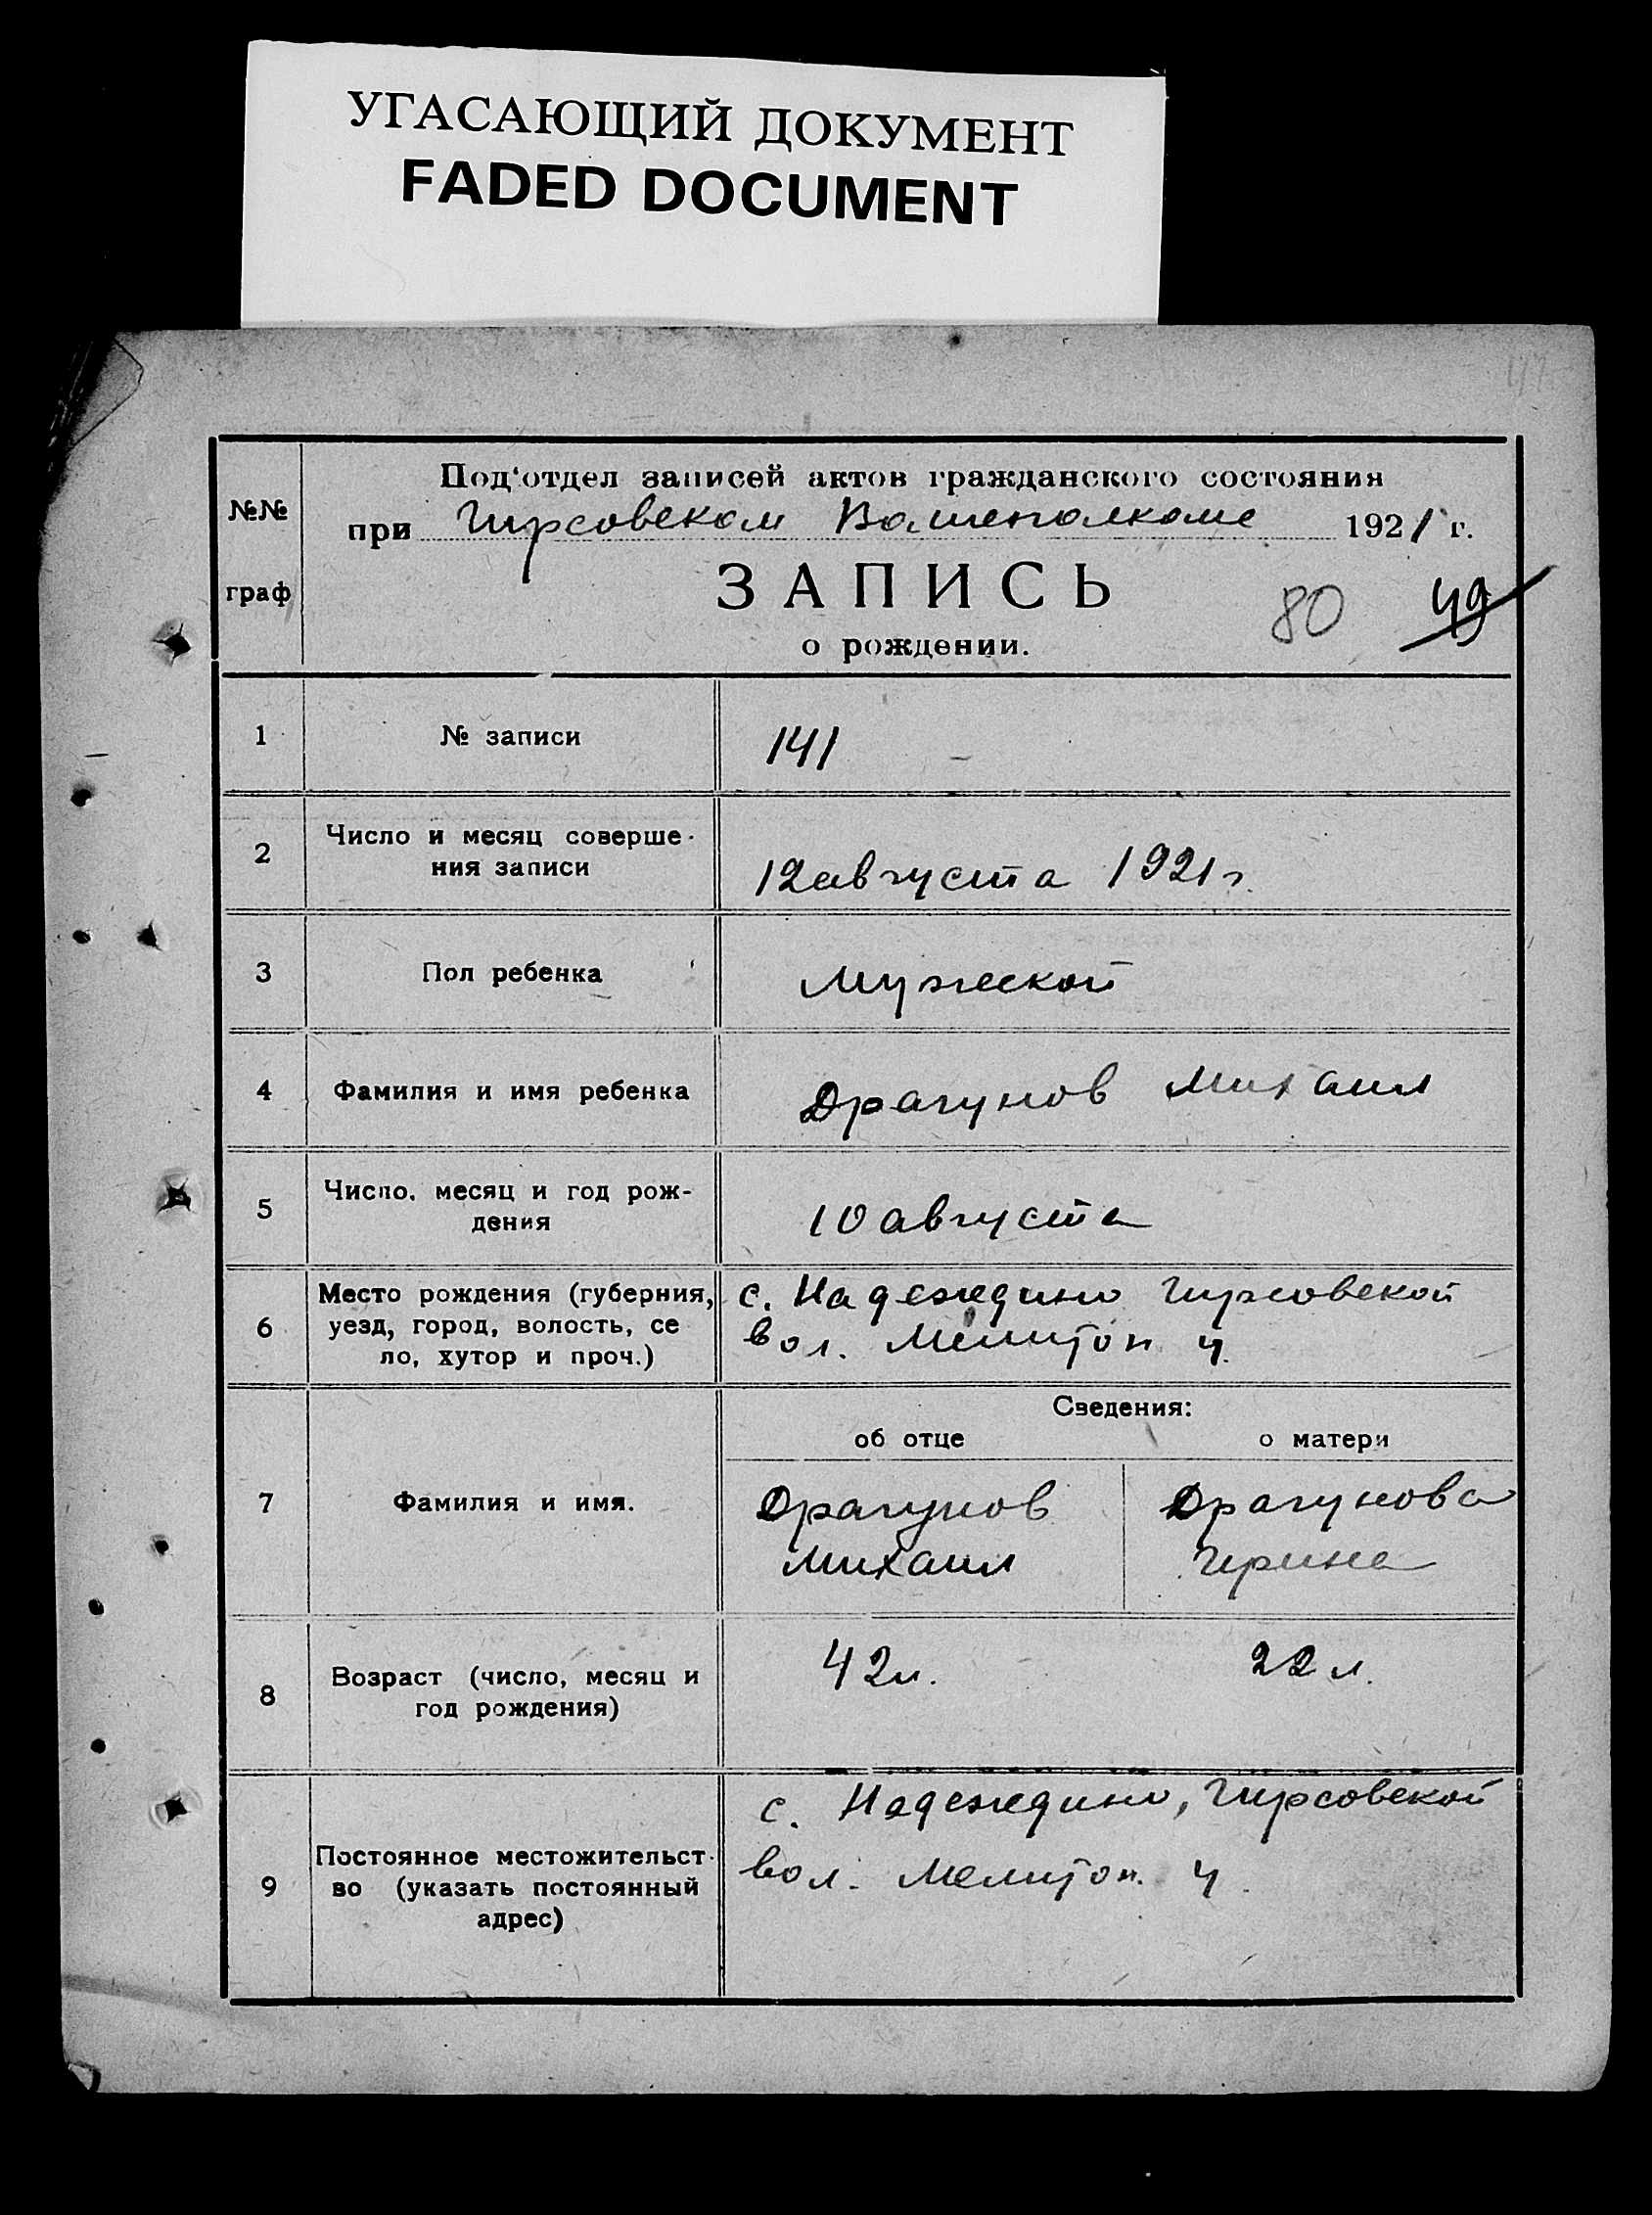 УГАСАЮЩИЙ ДОКУМЕНТ
FADED DOCUMENT
№№
граф
Под‘отдел записей актов гражданского состояния
при Гирсовском Волисполкоме 1921 г.
ЗАПИСЬ
80 49
о рождении.
1 № записи 141
2 Число и месяц соверше-
ния записи 12 августа 1921 г.
3 Пол ребенка мужской
4 Фамилия и имя ребенка Драгунов Михаил
5 Число, месяц и год рож-
дения 10 августа
6 Место рождения (губерния,
уезд, город, волость, се
ло, хутор и проч.)
с. Надеждино Гирсовской
вол. Мелитоп. у.
Сведения:
об отце о матери
7 Фамилия и имя.
Драгунов Драгунова
Михаил Ирина
8 Возраст (число, месяц и
год рождения)
42 л. 22 л.
9 Постоянное местожительст-
во (указать постоянный
адрес)
с. Надеждино, Гирсовской
вол. Мелитоп. у.